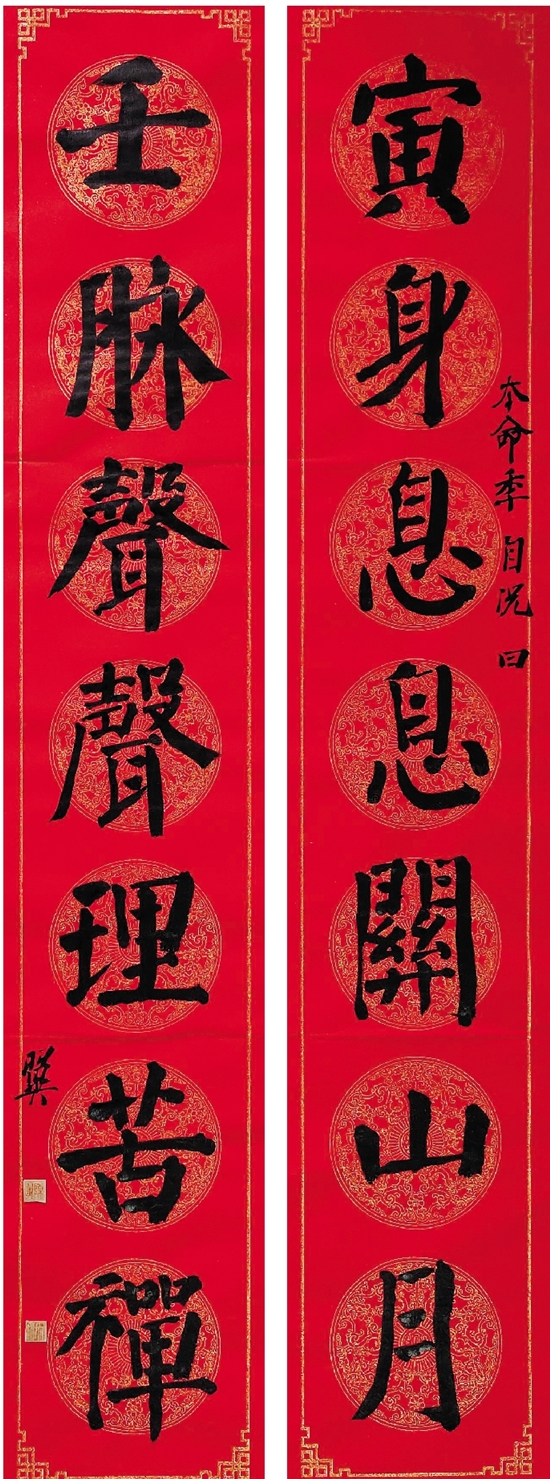 本命季自況曰
寅身息息關山月
壬脉聲聲理苦禪